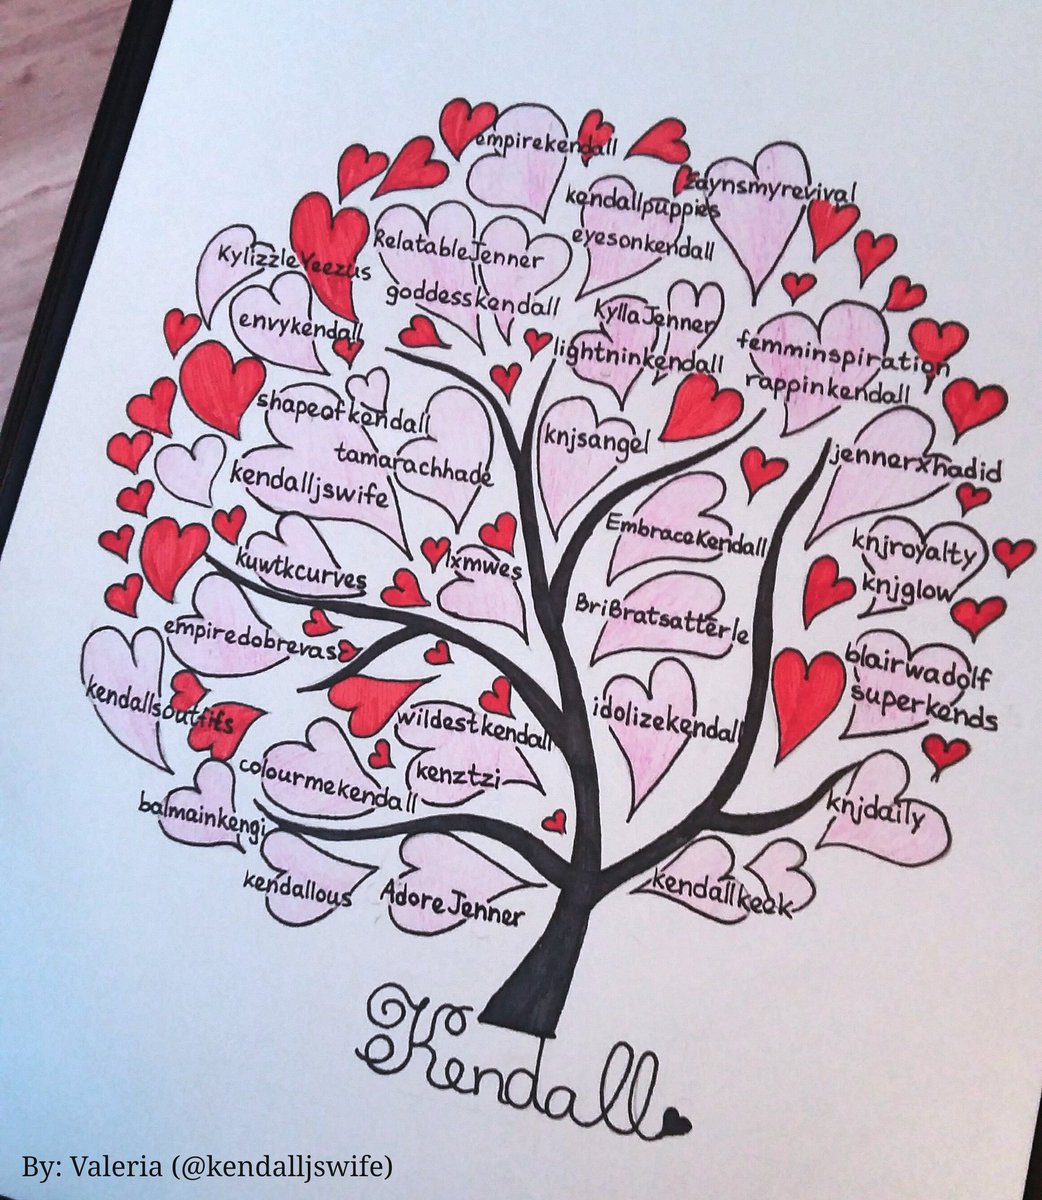 empirekendall
zaynsmyrevival
kendallpuppies
eyesonkendall
RelatableJenner
KylizzleYeezus
goddesskendall
KyllaJenner
envykendall
lightninkendall
femminspiration
rappinkendall
shapeofkendall
knjsangel
tamarachhade
kendalljswife
jennerxhadid
EmbraceKendall
knjroyalty
knjglow
kuwtkcurves
lxmwes
BriBratsatterle
empiredobrevas
blairwadolf
superkends
kendallsoutfits
wildestkendall
idolizekendall
colourmekendall
kenztzi
balmainkengi
knjdaily
kendallous
AdoreJenner
kendallkeek
Kendall
By: Valeria (@kendalljswife)